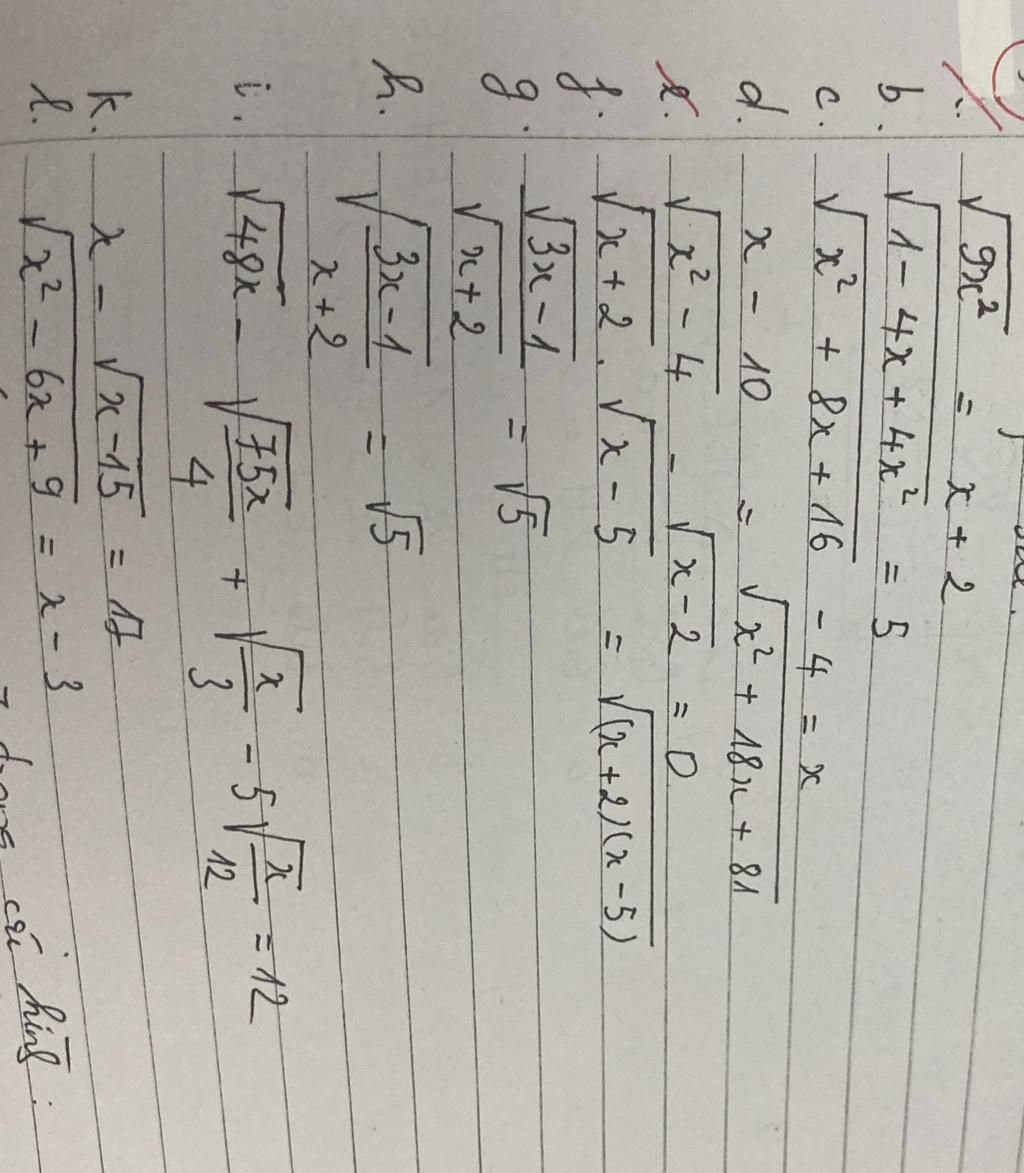 a. √(9x²) = x + 2
b. √(1 - 4x + 4x²) = 5
c. √(x² + 8x + 16) - 4 = x
d. x - 10 = √(x² + 18x + 81)
e. √(x² - 4) - √(x - 2) = 0
f. √(x + 2) . √(x - 5) = √((x + 2)(x - 5))
g. √(3x - 1) / √(x + 2) = √5
h. √((3x - 1) / (x + 2)) = √5
i. √(48x) - √(75x / 4) + √(x / 3) - 5√(x / 12) = 12
k. x - √(x - 15) = 17
l. √(x² - 6x + 9) = x - 3